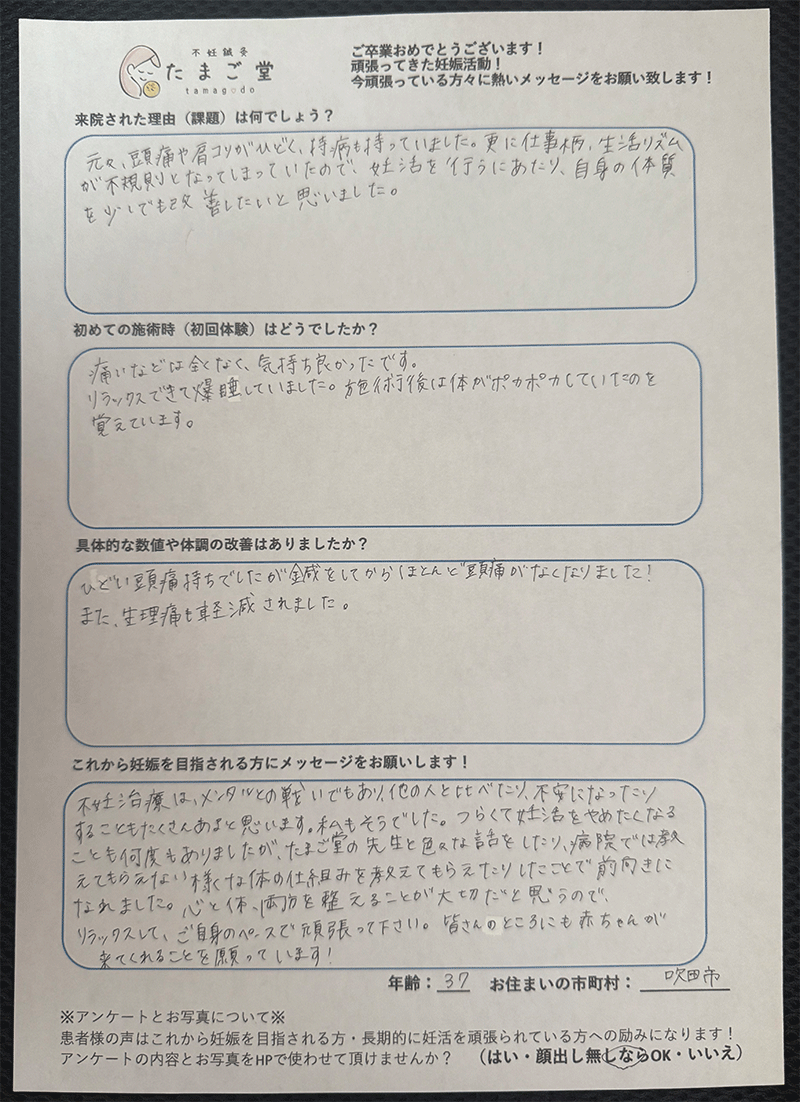 不妊鍼灸
たまご堂
tamagodo
ご卒業おめでとうございます！
頑張ってきた妊娠活動！
今頑張っている方々に熱いメッセージをお願い致します！
来院された理由（課題）は何でしょう？
元々、頭痛や肩コリがひどく、持病も持っていました。更に仕事柄、生活リズム
が不規則となってしまっていたので、妊活を行うにあたり、自身の体質
を少しでも改善したいと思いました。
初めての施術時（初回体験）はどうでしたか？
痛いなどは全くなく、気持ち良かったです。
リラックスできて爆睡していました。施術後は体がポカポカしていたのを
覚えています。
具体的な数値や体調の改善はありましたか？
ひどい頭痛持ちでしたが鍼をしてからほとんど頭痛がなくなりました！
また、生理痛も軽減されました。
これから妊娠を目指される方にメッセージをお願いします！
不妊治療は、メンタルとの戦いでもあり、他の人と比べたり、不安になったり
することもたくさんあると思います。私もそうでした。つらくて妊活をやめたくなる
ことも何度もありましたが、たまご堂の先生と色々な話をしたり、病院では教
えてもらえない様々な体の仕組みを教えてもらえたりしたことで前向きに
なれました。心と体、両方を整えることが大切だと思うので、
リラックスして、ご自身のペースで頑張って下さい。皆さんのところにも赤ちゃんが
来てくれることを願っています！
年齢：37 お住まいの市町村：吹田市
※アンケートとお写真について※
患者様の声はこれから妊娠を目指される方・長期的に妊活を頑張られている方への励みになります！
アンケートの内容とお写真をHPで使わせて頂けませんか？ （はい・顔出し無しならOK・いいえ）